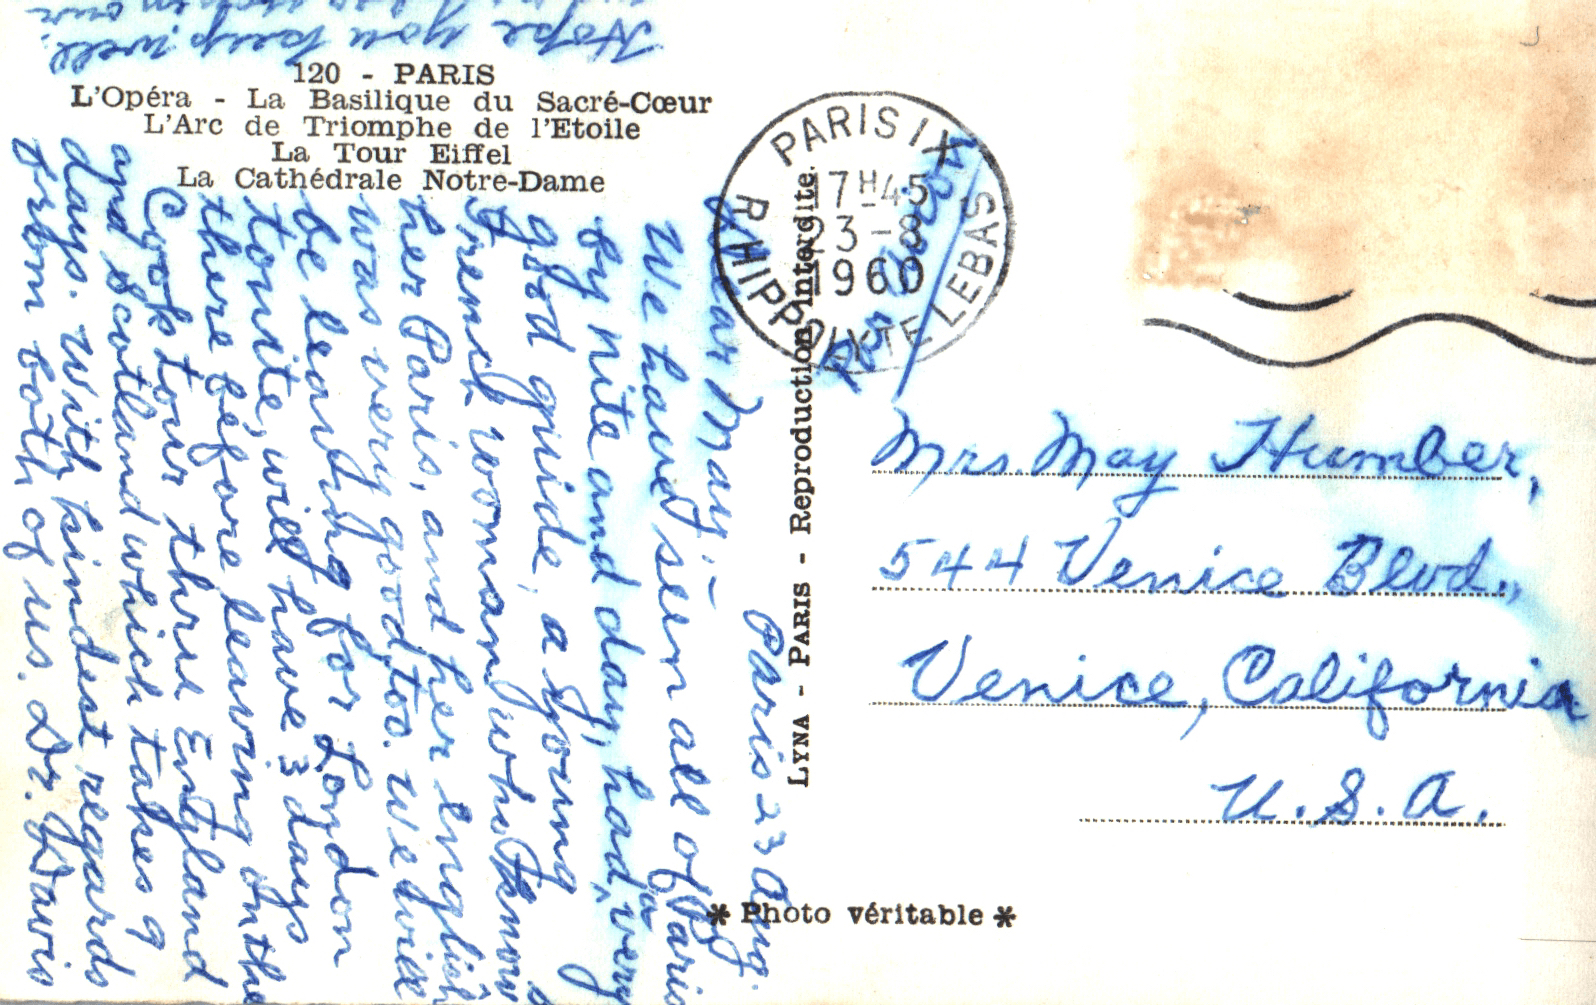 120 - PARIS
L'Opéra - La Basilique du Sacré-Cœur
L'Arc de Triomphe de l'Etoile
La Tour Eiffel
La Cathédrale Notre-Dame
Paris 23 Aug.
Dear May:-
We have seen all of Paris
by nite and day, had a very
good guide, a young
French woman who knows
her Paris, and her english
was very good too. We will
be leaving for London
tonite, will have 3 days
there before leaving on the
Cook tour thru England
and Scotland which takes 9
days. With kindest regards
from both of us. Dr. Davis
Hope you keep well.
LYNA - PARIS - Reproduction interdite.
PARIS IX
17H45
23-8
1960
R. HIPPOLYTE LEBAS
Mrs May Humber,
544 Venice Blvd.,
Venice, California
U.S.A.
* Photo véritable *